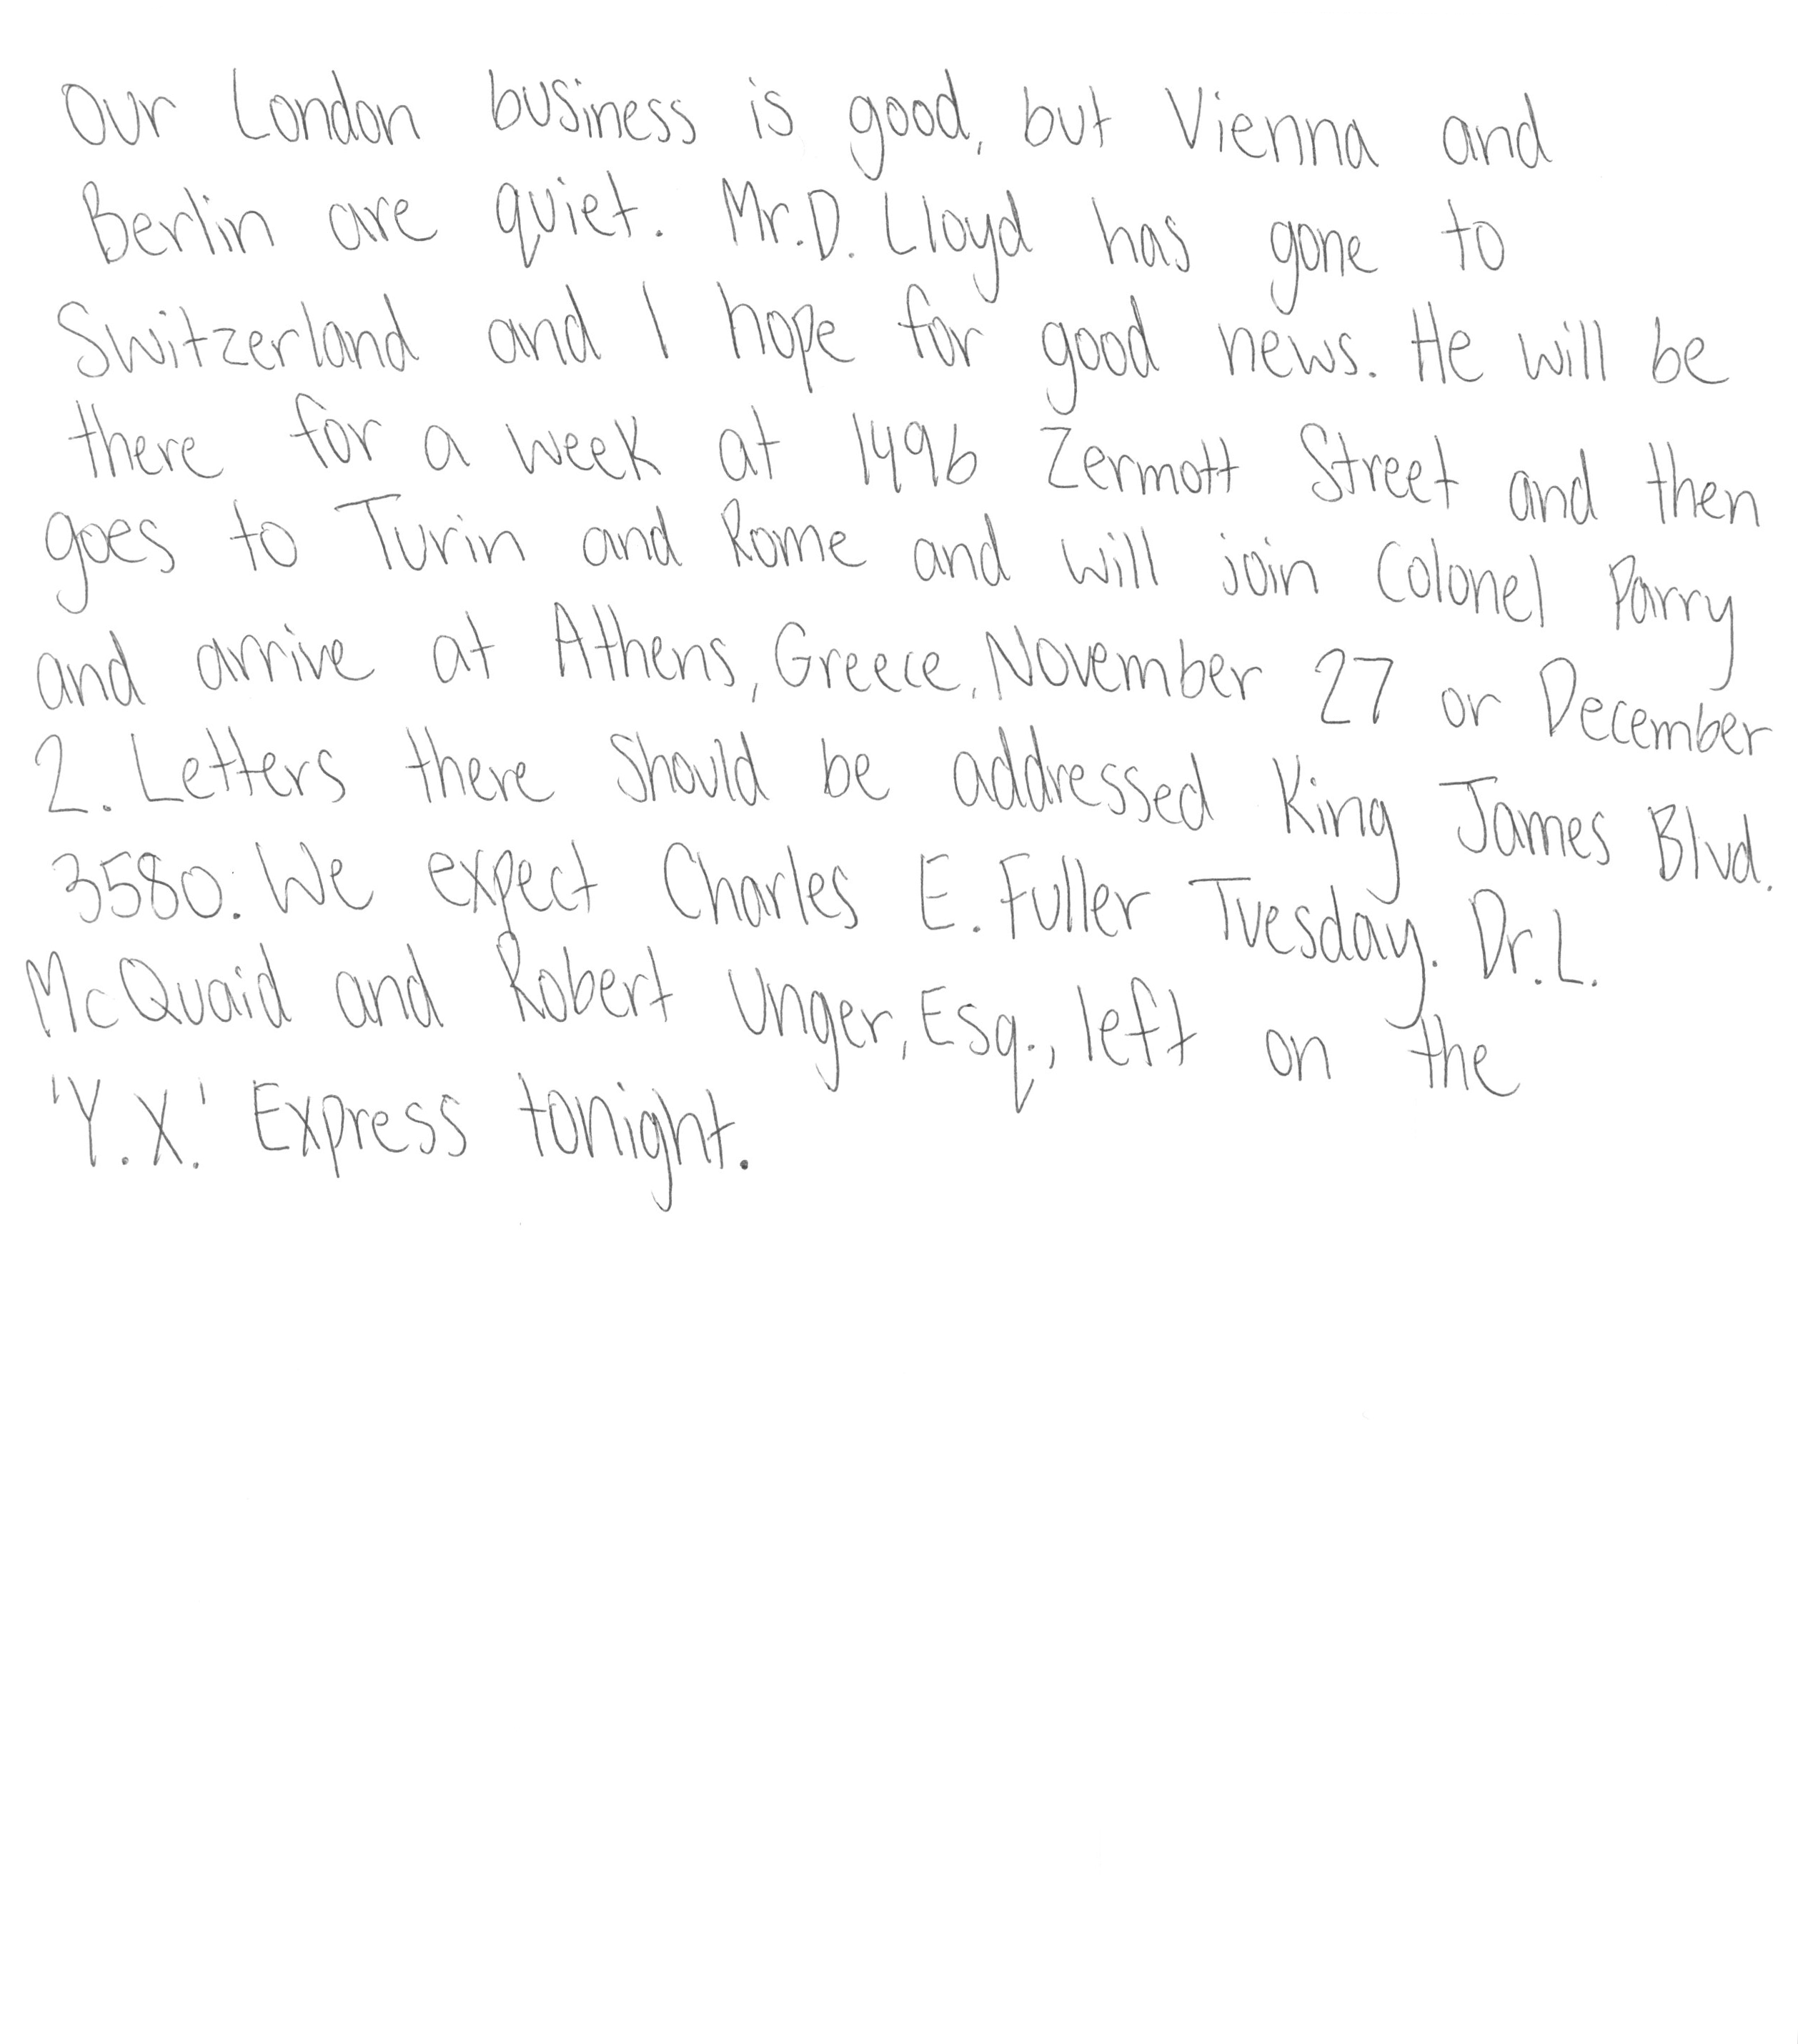 Our London business is good, but Vienna and
Berlin are quiet. Mr. D. Lloyd has gone to
Switzerland and I hope for good news. He will be
there for a week at 1496 Zermott Street and then
goes to Turin and Rome and will join Colonel Parry
and arrive at Athens, Greece, November 27 or December
2. Letters there should be addressed King James Blvd.
3580. We expect Charles E. Fuller Tuesday. Dr. L.
McQuaid and Robert Unger, Esq., left on the
'Y.X.' Express tonight.